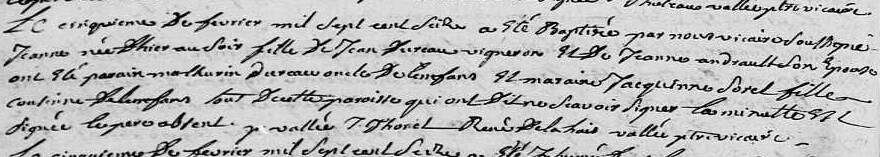 Le cinquieme De fevrier mil sept cent seize a Eté Baptisée par nous vicaire soussigné
Jeanne née D'hier au soir fille De Jean Dureau vigneron Et De Jeanne andrault son Epouse
ont Eté parain mathurin Dureau oncle De Lenfans Et maraine Jacquinne Sorel fille
cousinne De lenfans tout De cette paroisse qui ont Dit ne scavoir signer la minutte Est
signée le pere absent. p. vallée J. Thorel René Delahais vallée ptre vicaire
Le cinquieme De fevrier mil sept cent seize a Eté